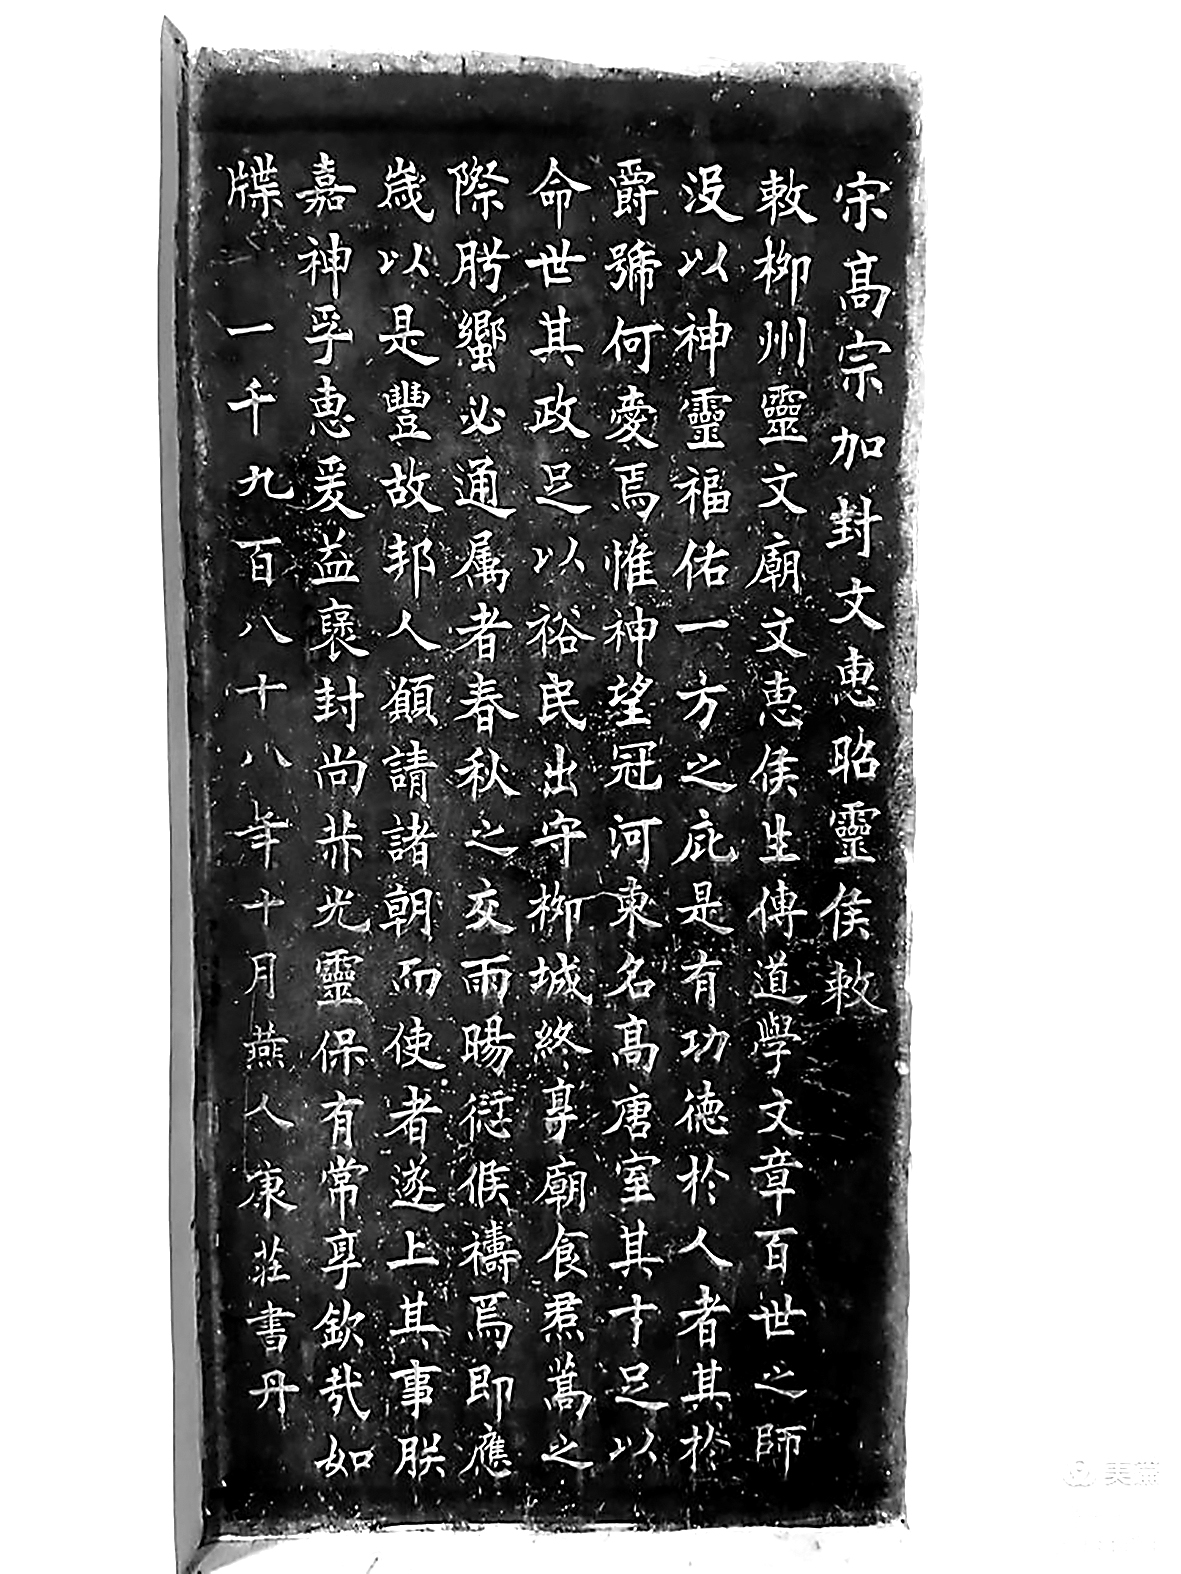 宗高宗加封文惠昭靈侯敕
敕栁州靈文廟文惠侯生傳道學文章百世之師
没以神靈福佑一方之庇是有功德於人者其於
爵號何愛焉惟神望冠河東名高唐室其才足以
命世其政足以裕民出守栁城終享廟食焄蒿之
際肹蠁必通属者春秋之交雨暘愆候禱焉即應
歳以是豐故邦人願請諸朝而使者遂上其事朕
嘉神孚惠爰益襃封尚恭光靈保有常享欽哉如
牒 一千九百八十八年十月燕人康莊書丹